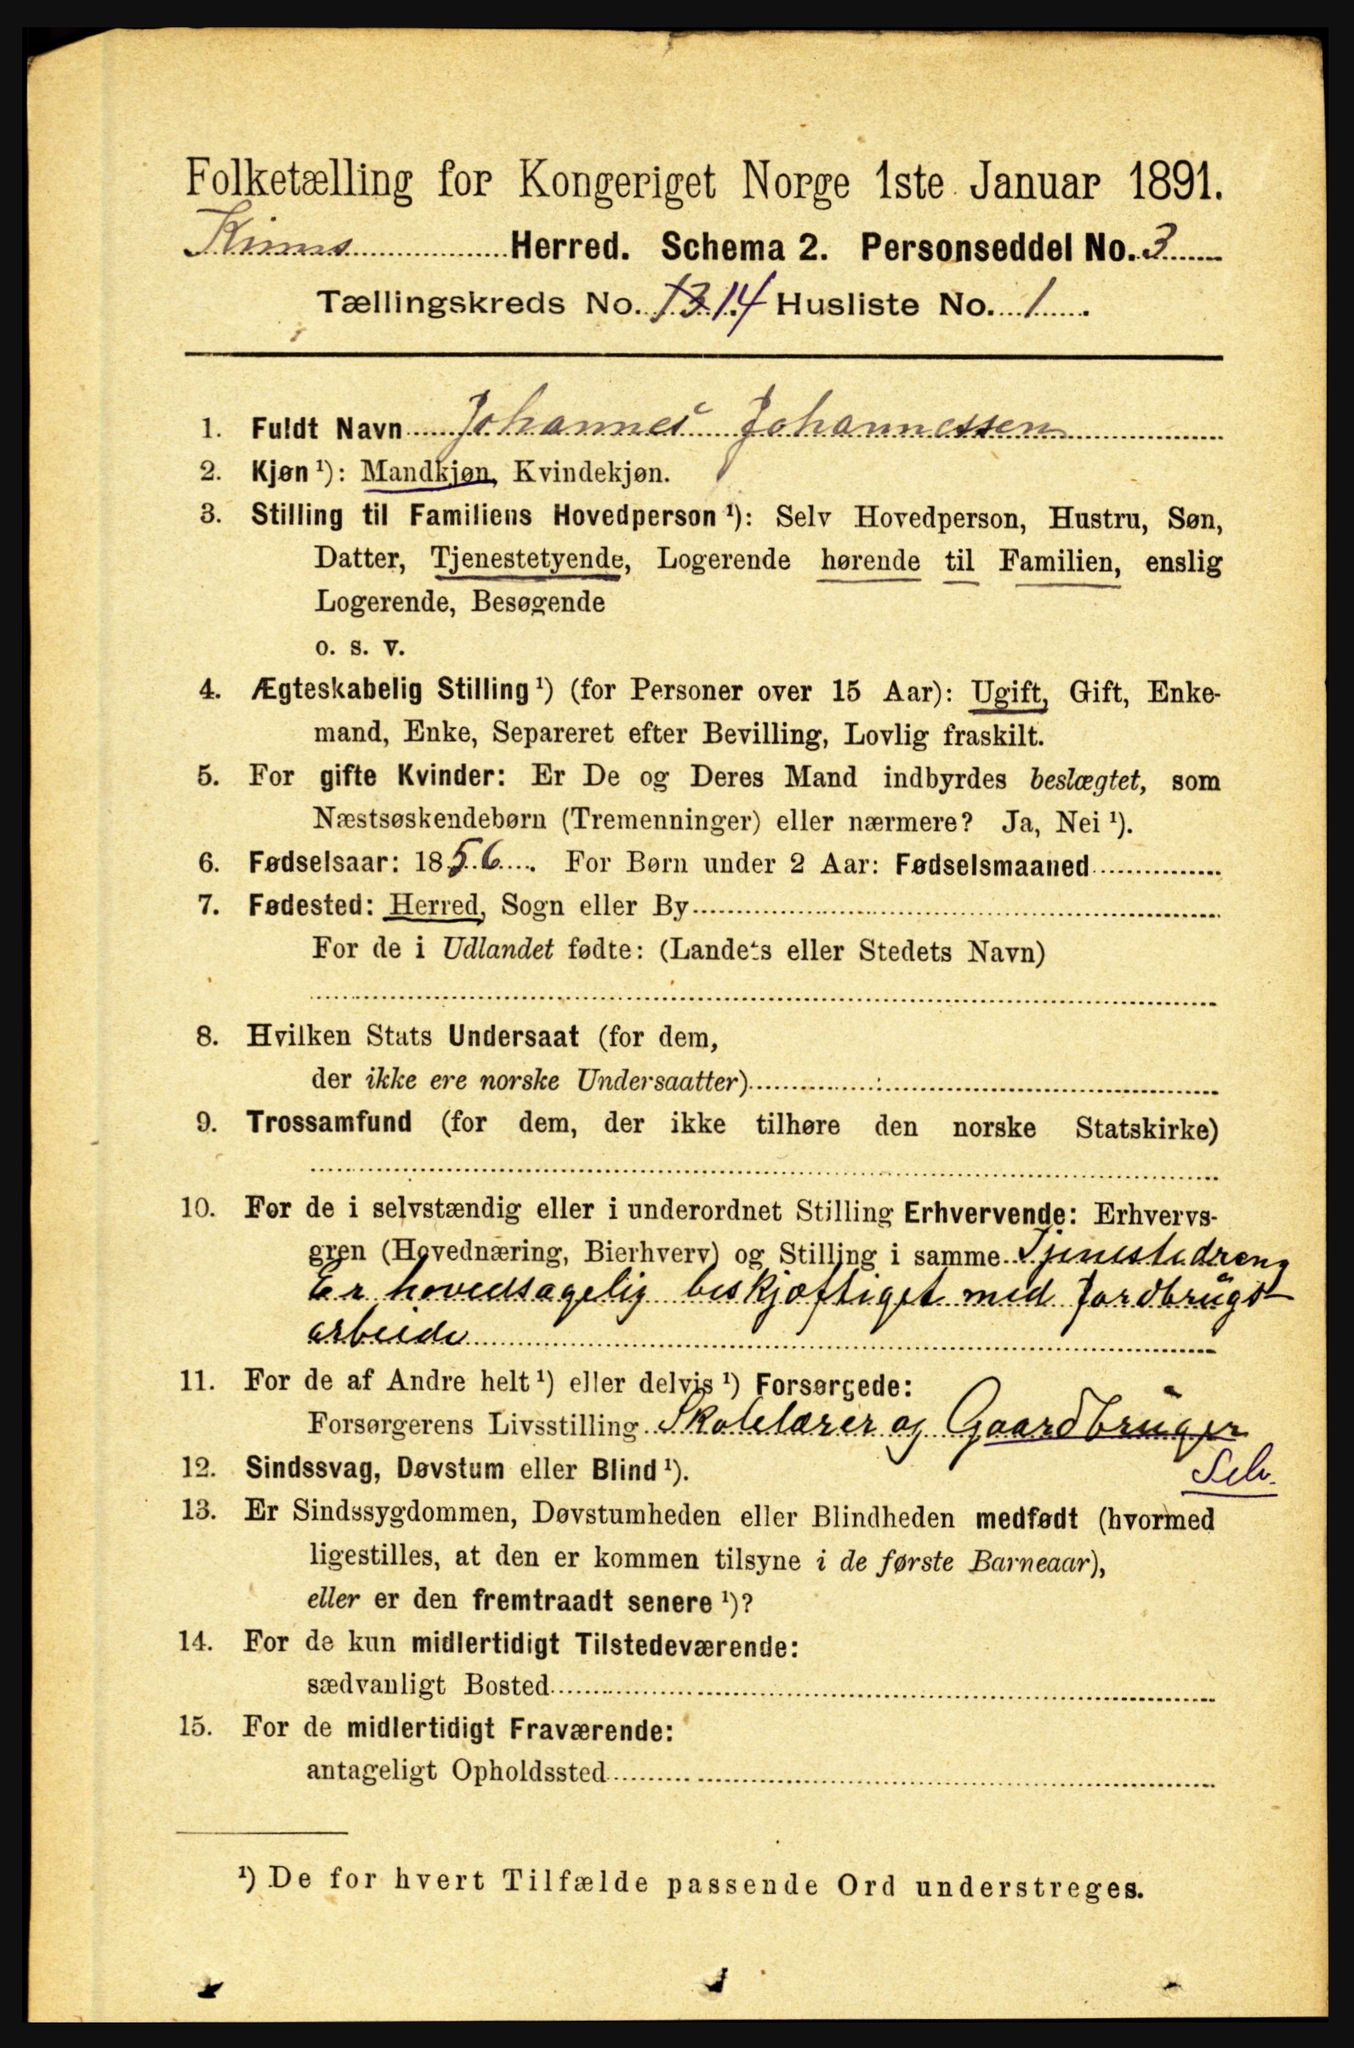 Folketælling for Kongeriget Norge 1ste Januar 1891.
Kinns Herred. Schema 2. Personseddel No. 3
Tællingskreds No. 13 14 Husliste No. 1
1. Fuldt Navn Johannes Johannessen
2. Kjøn ¹): Mandkjøn, Kvindekjøn.
3. Stilling til Familiens Hovedperson ¹): Selv Hovedperson, Hustru, Søn,
Datter, Tjenestetyende, Logerende hørende til Familien, enslig
Logerende, Besøgende
o. s. v.
4. Ægteskabelig Stilling ¹) (for Personer over 15 Aar): Ugift, Gift, Enke-
mand, Enke, Separeret efter Bevilling, Lovlig fraskilt.
5. For gifte Kvinder: Er De og Deres Mand indbyrdes beslægtet, som
Næstsøskendebørn (Tremenninger) eller nærmere? Ja, Nei ¹).
6. Fødselsaar: 1856. For Børn under 2 Aar: Fødselsmaaned
7. Fødested: Herred, Sogn eller By
For de i Udlandet fødte: (Landets eller Stedets Navn)
8. Hvilken Stats Undersaat (for dem,
der ikke ere norske Undersaatter)
9. Trossamfund (for dem, der ikke tilhøre den norske Statskirke)
10. For de i selvstændig eller i underordnet Stilling Erhvervende: Erhvervs-
gren (Hovednæring, Bierhverv) og Stilling i samme Tjenestedreng
Er hovedsagelig beskjæftiget med Jordbrugs-
arbeide
11. For de af Andre helt ¹) eller delvis ¹) Forsørgede:
Forsørgerens Livsstilling Skolelærer og Gaardbruger
12. Sindssvag, Døvstum eller Blind ¹). Selv.
13. Er Sindssygdommen, Døvstumheden eller Blindheden medfødt (hvormed
ligestilles, at den er kommen tilsyne i de første Barneaar),
eller er den fremtraadt senere ¹)?
14. For de kun midlertidigt Tilstedeværende:
sædvanligt Bosted
15. For de midlertidigt Fraværende:
antageligt Opholdssted
¹) De for hvert Tilfælde passende Ord understreges.